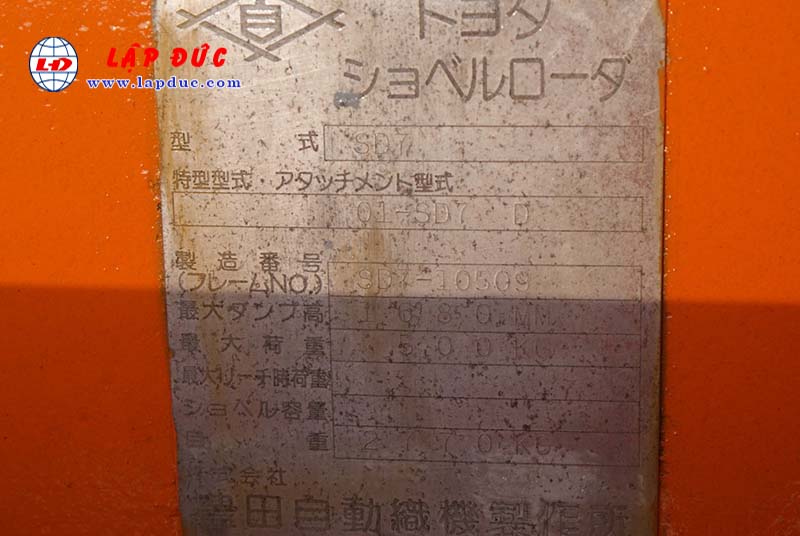 LẬP ĐỨC
www.lapduc.com
トヨタ
ショベルローダ
型 式 SD7
特型型式・アタッチメント型式
01-SD7 D
製造番号
(フレームNO.) SD7-10509
最大ダンプ高 MM
最大荷重 KG
最大リーチ時荷重
ショベル容量
自 重 2770KG
株式会社
豊田自動織機製作所